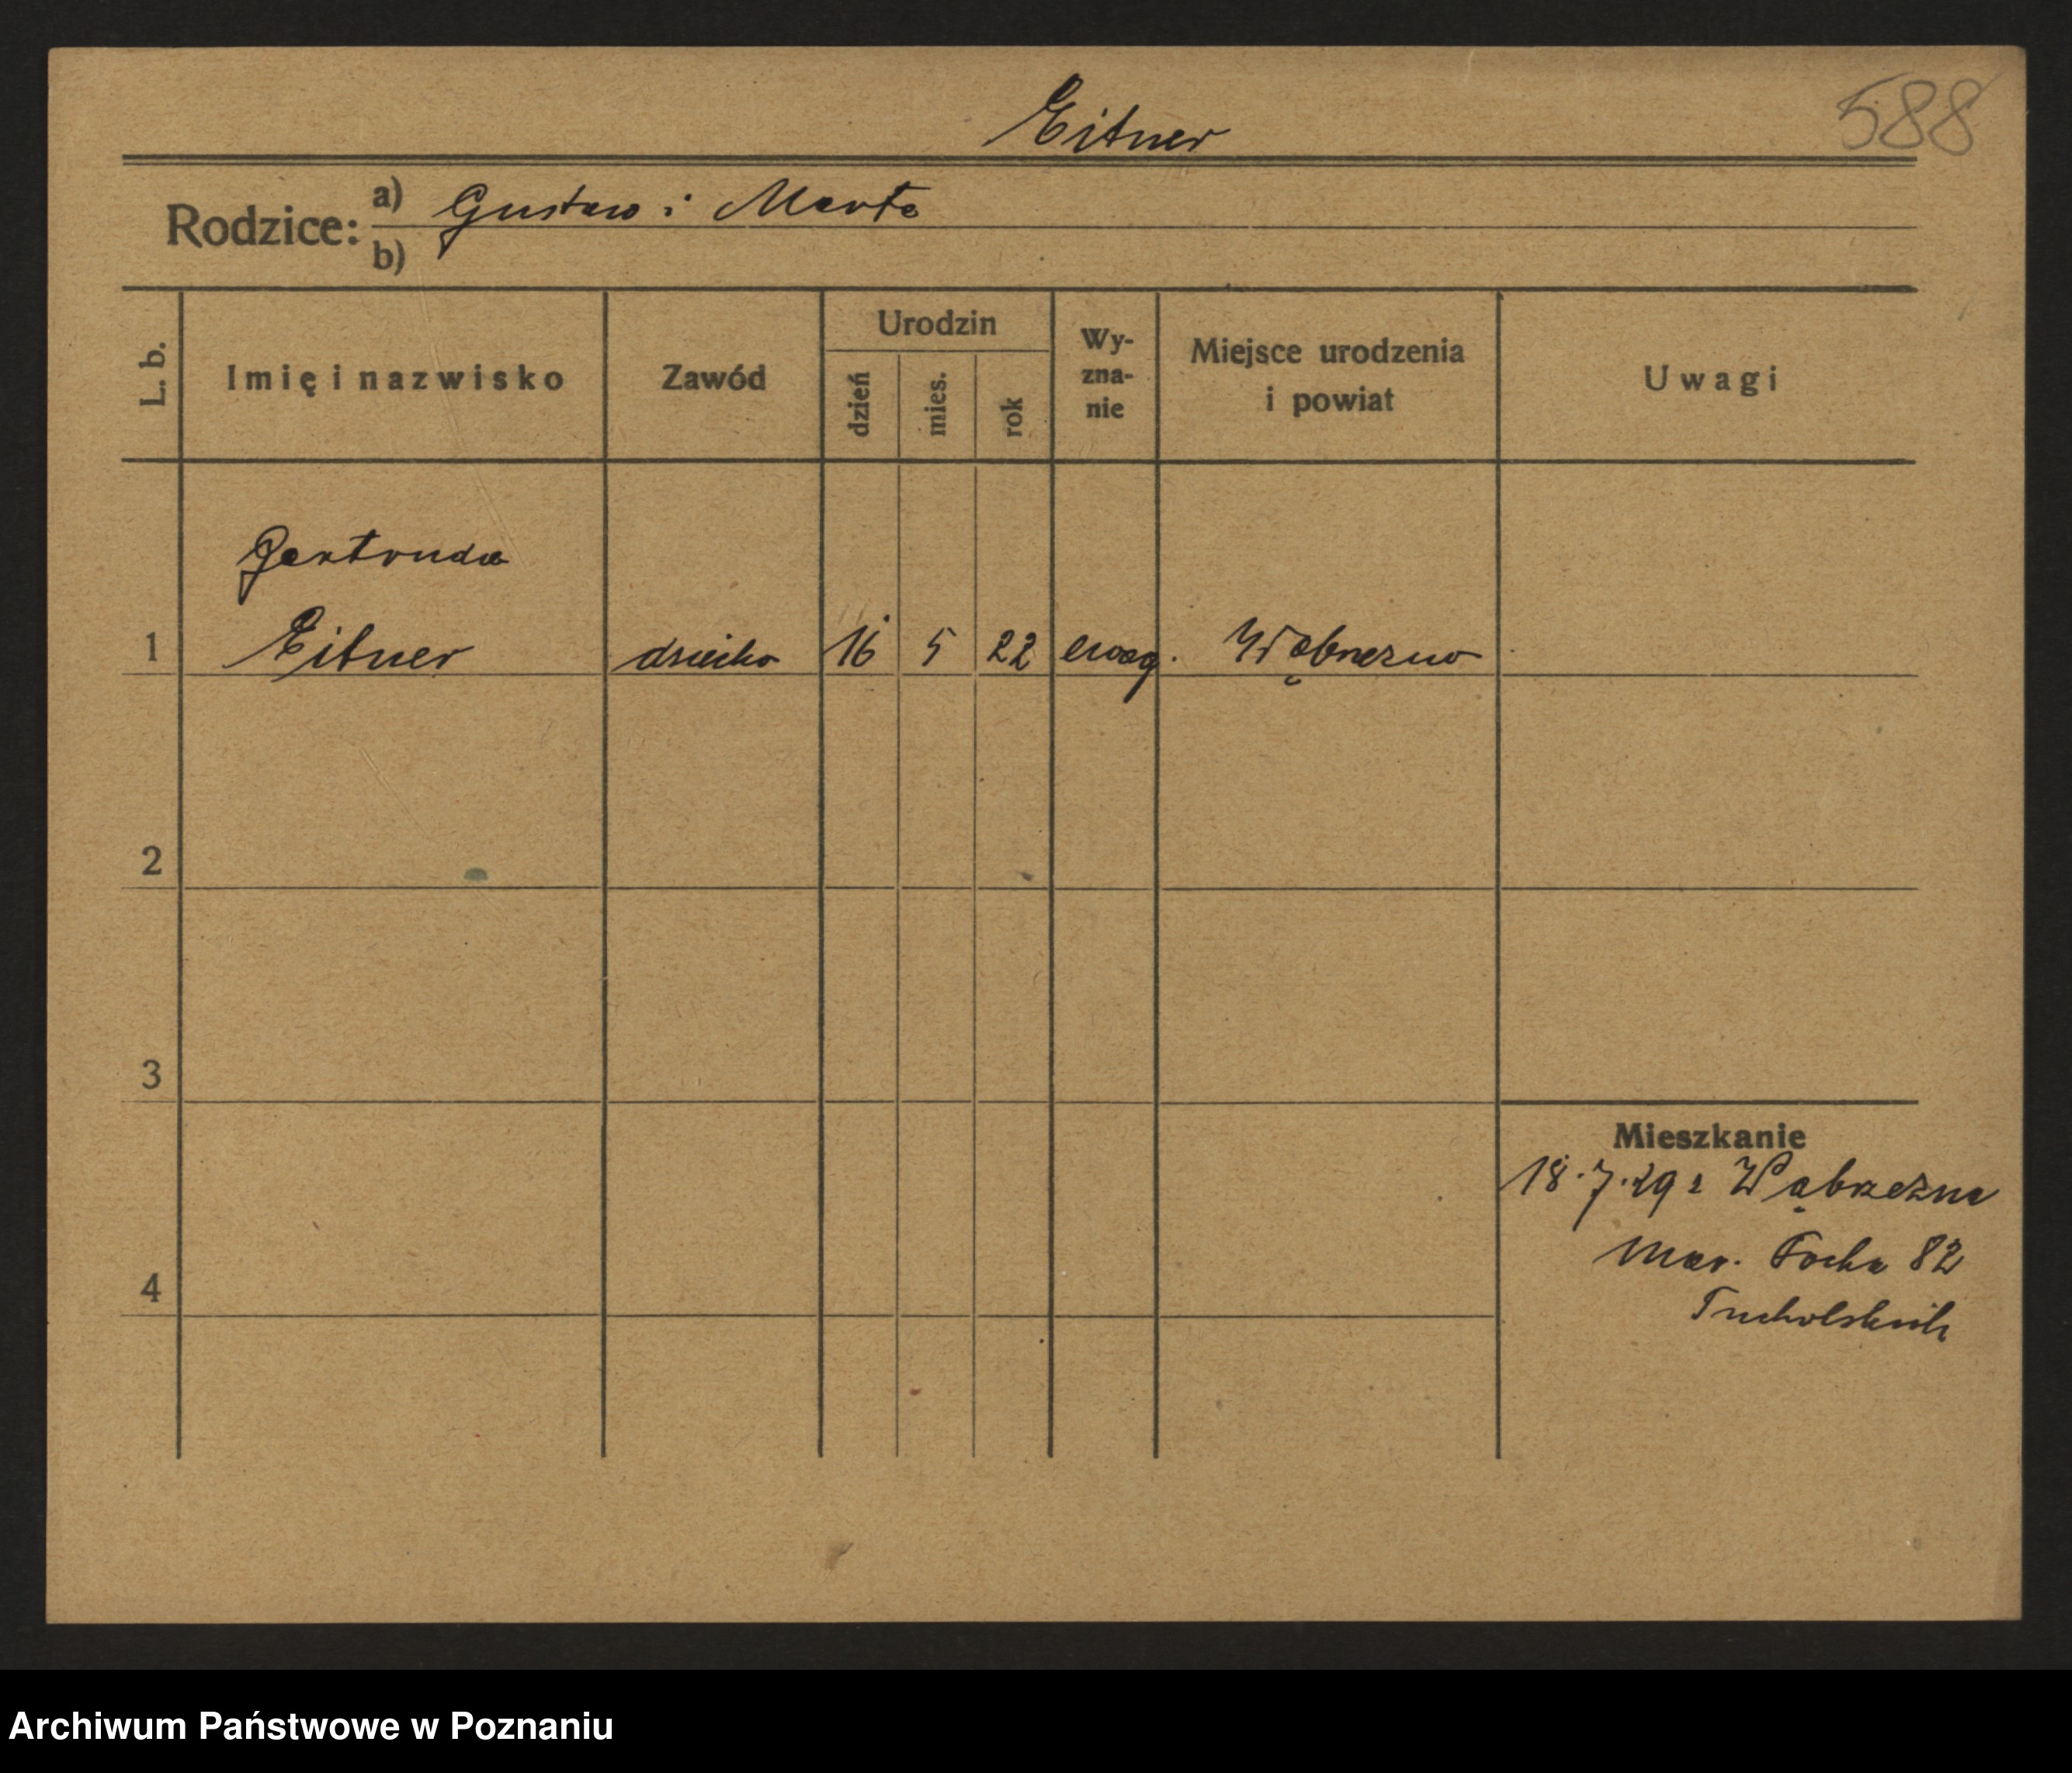 588
Eitner
Rodzice: a) Gustaw i Marta
b)
L. b.
Imię i nazwisko
Zawód
Urodzin
dzień
mies.
rok
Wy-
zna-
nie
Miejsce urodzenia
i powiat
Uwagi
Gertruda
1 Eitner dziecko 16 5 22 ewag. Wąbrzezno
2
3
4
Mieszkanie
18.7.29 z Wąbrzezna
Mar. Focha 82
Tucholskich
Archiwum Państwowe w Poznaniu